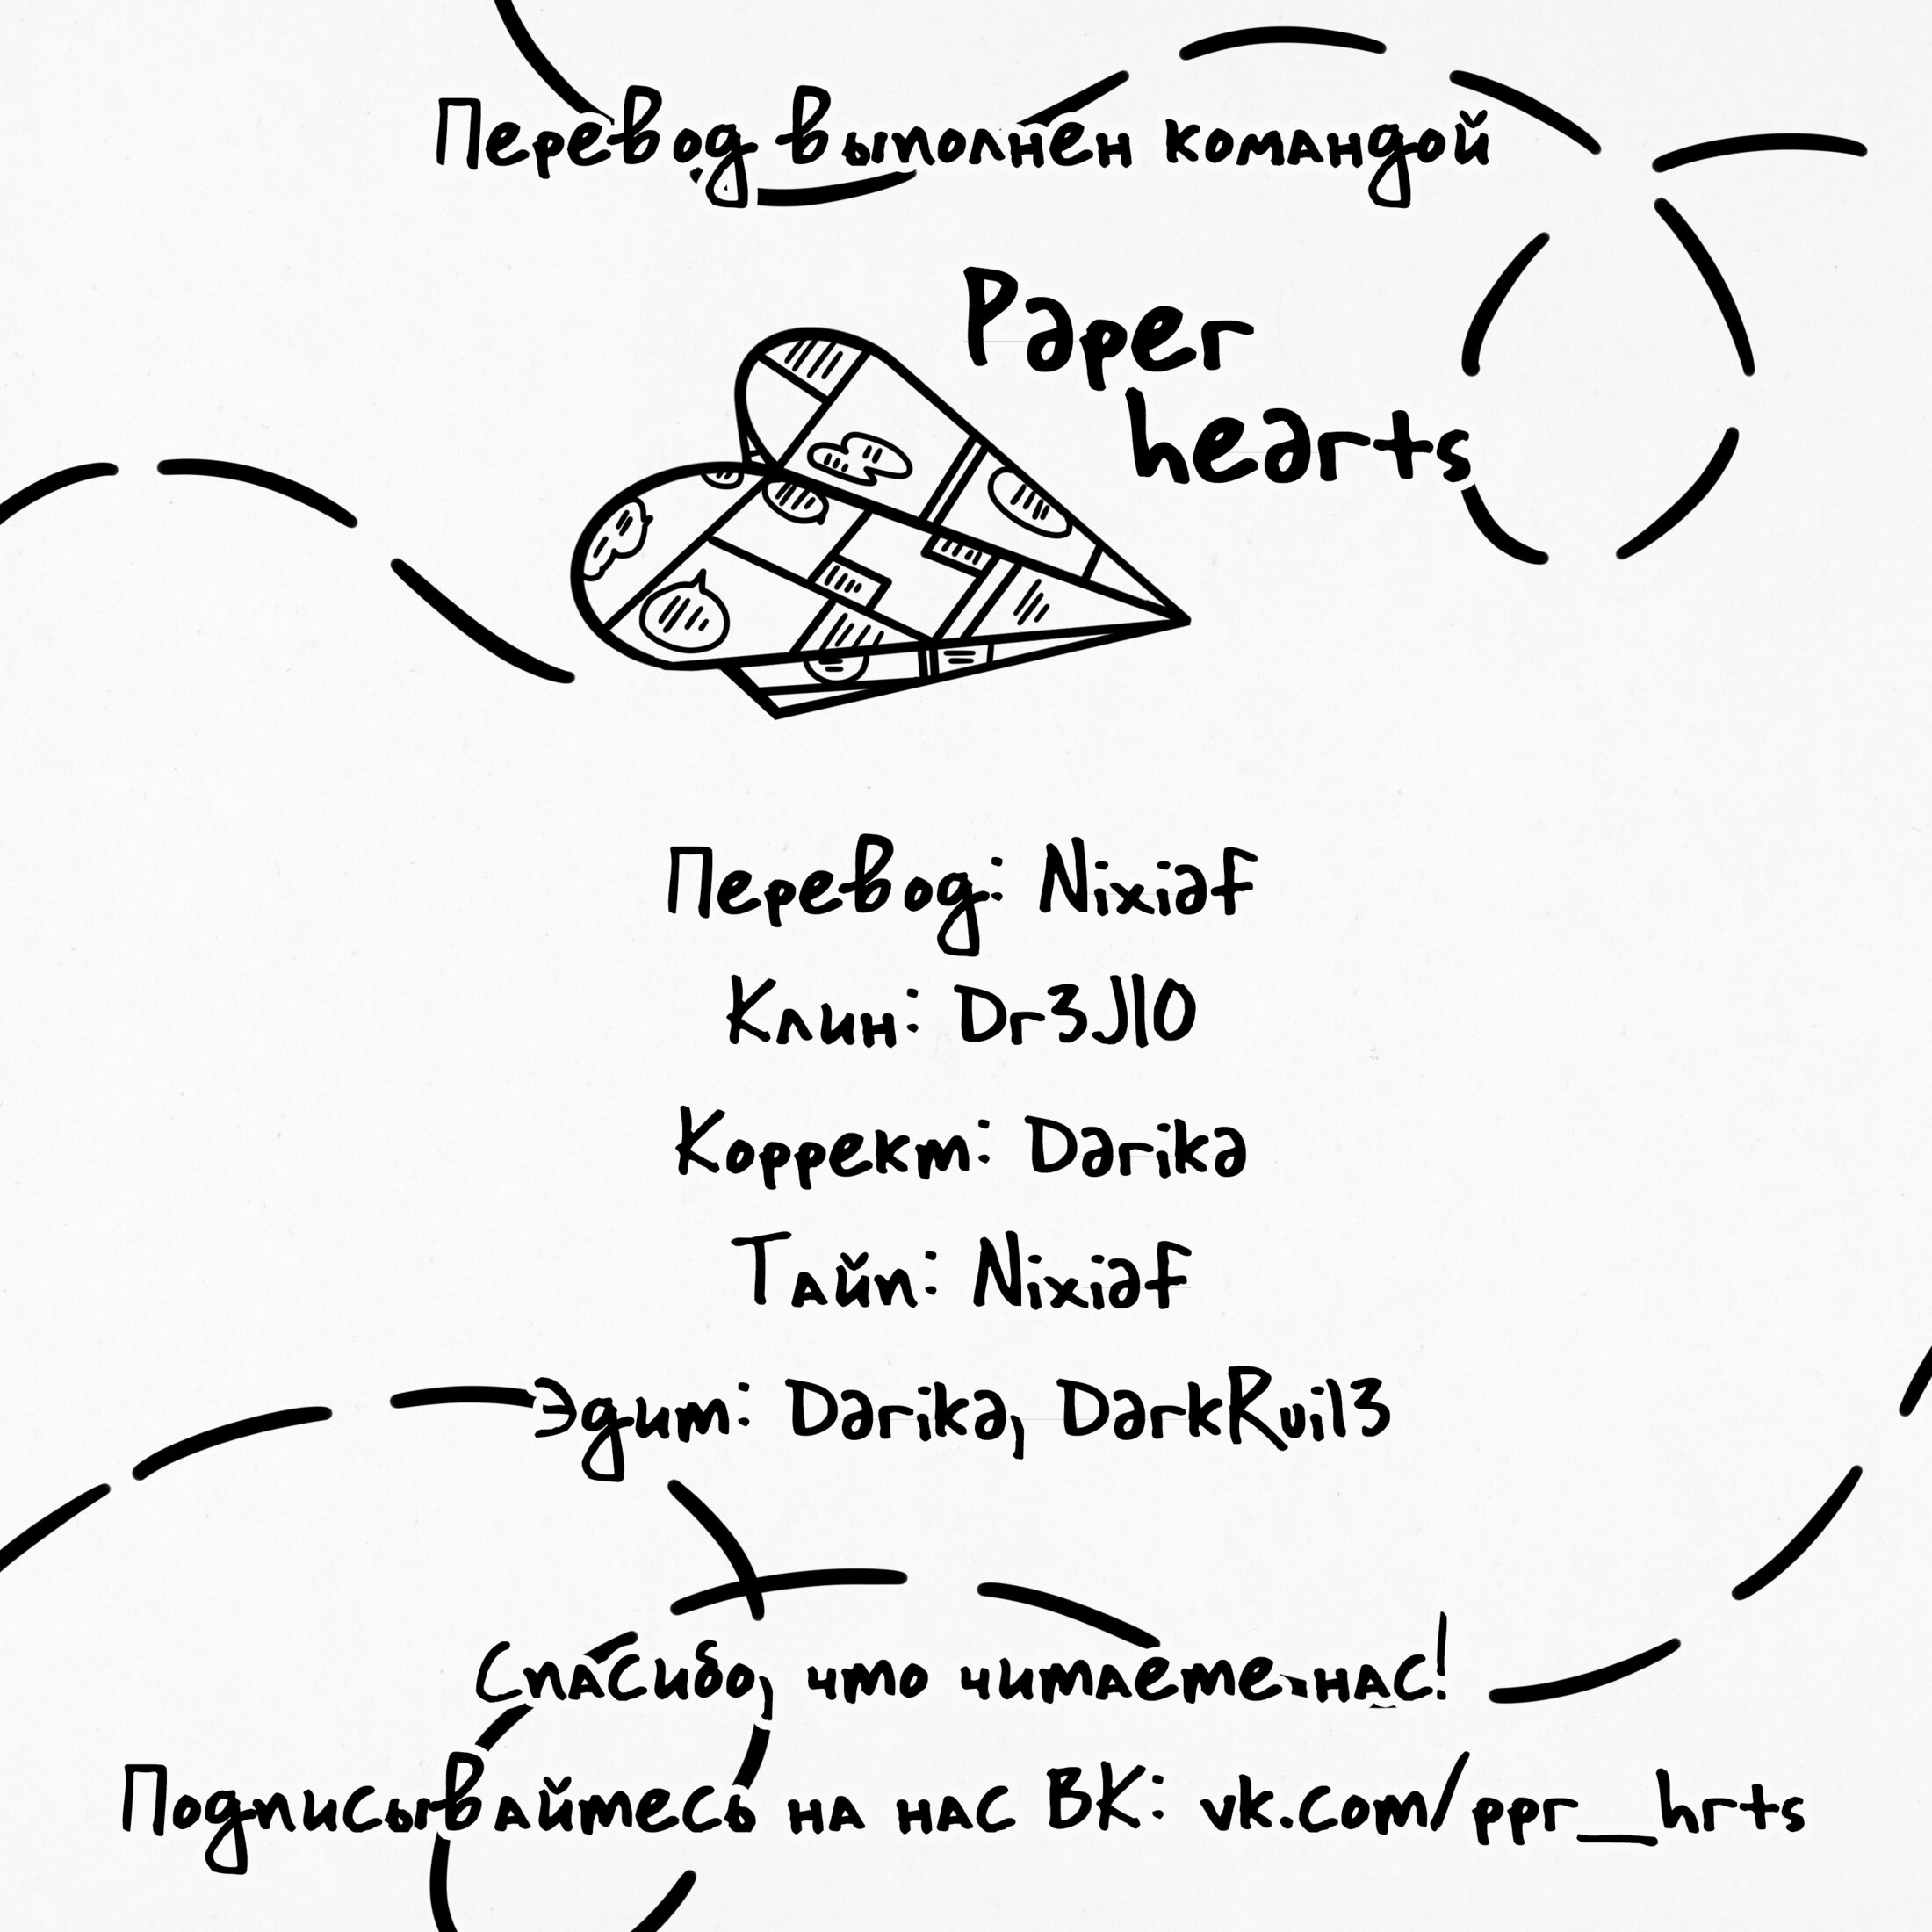 Перевод выполнен командой
Paper
hearts
Перевод: Nixiaf
Клин: Dr3JlO
Коррект: Darika
Тайп: Nixiaf
Эдит: Darika, DarkRuil3
Спасибо, что читаете нас!
Подписывайтесь на нас ВК: vk.com/ppr__hrts